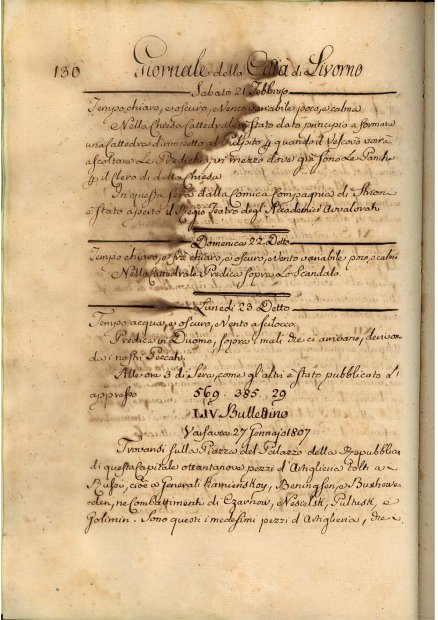 130 Giornale della Città di Livorno
Sabato 21 Febbrajo
Tempo chiaro, e oscuro, e Vento variabile poco, e calma
Nella Chiesa Cattedrale è stato dato principio a formare
una Cattedra dirimpetto al Pulpito p. quando il Vescovo vorrà
ascoltare Le Prediche, in mezzo dove già sono Le Panche
p. il Clero di detta Chiesa
In questa sera dalla Comica Compagnia di
è stato aperto il Regio Teatro degli Accademici Avvalorati
Domenica 22 Detto
Tempo chiaro, e frà chiaro, e oscuro, e Vento variabile poco, e calma
Nella Cattedrale Predica sopra Lo Scandalo
Lunedì 23 Detto
Tempo acqua, e oscuro, e Vento a scilocco
Predica in Duomo, sopra i mali che ci arrivano, derivano
da i nostri Peccati
Alle ore 3 di Sera, come gl'altri è stato pubblicato l'
appresso 569. 385. 29
LIV. Bullettino
Varsavia 27 Gennajo 1807
Trovansi sulla Piazza del Palazzo della Repubblica
di questa Capitale ottantanove pezzi d'Artiglieria tolti a
Russi, cioè a Generali Kamienskoy, Beningsen, e Buxhowe
oden, ne Combattimenti di Czarnow, Nasielsk, Pultusk, e
Golimin. Sono questi i medesimi pezzi d'Artiglieria, che